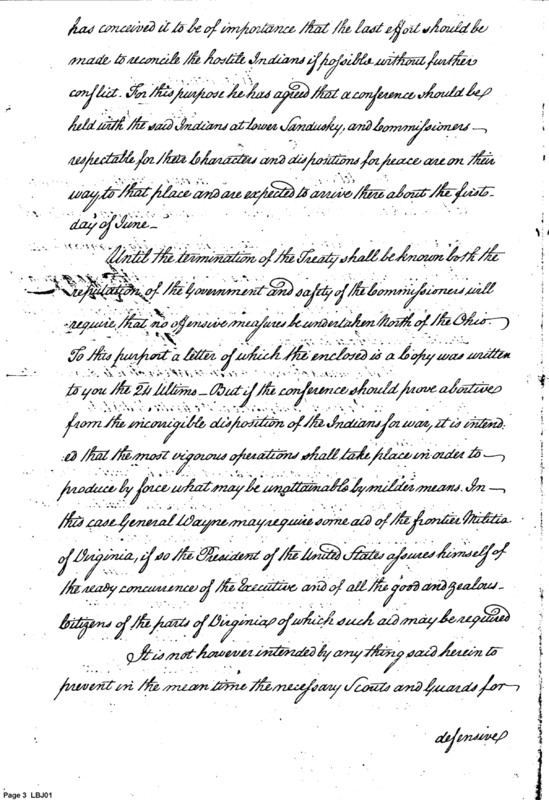 has conceived it to be of importance that the last effort should be
made to reconcile the hostile Indians if possible without further
conflict. For this purpose he has agreed that a conference should be
held with the said Indians at Lower Sandusky, and Commissioners —
respectable for their Characters and dispositions for peace are on their
way to that place and are expected to arrive there about the first —
day of June —
Until the termination of the Treaty shall be known both the
reputation of the Government and safety of the Commissioners will
require, that no offensive measures be undertaken North of the Ohio —
To this purport a letter of which the enclosed is a Copy was written
to you the 24 Ultimo — But if the conference should prove abortive
from the incorrigible disposition of the Indians for war, it is intend-
ed that the most vigorous operations shall take place in order to —
produce by force what may be unattainable by milder means. In —
this case General Wayne may require some aid of the frontier Militia
of Virginia, if so the President of the United States assures himself of
the ready concurrence of the Executive and of all the good and zealous —
Citizens of the parts of Virginia of which such aid may be required
It is not however intended by any thing said herein to
prevent in the mean time the necessary Scouts and Guards for —
defensive
Page 3 LBJ01